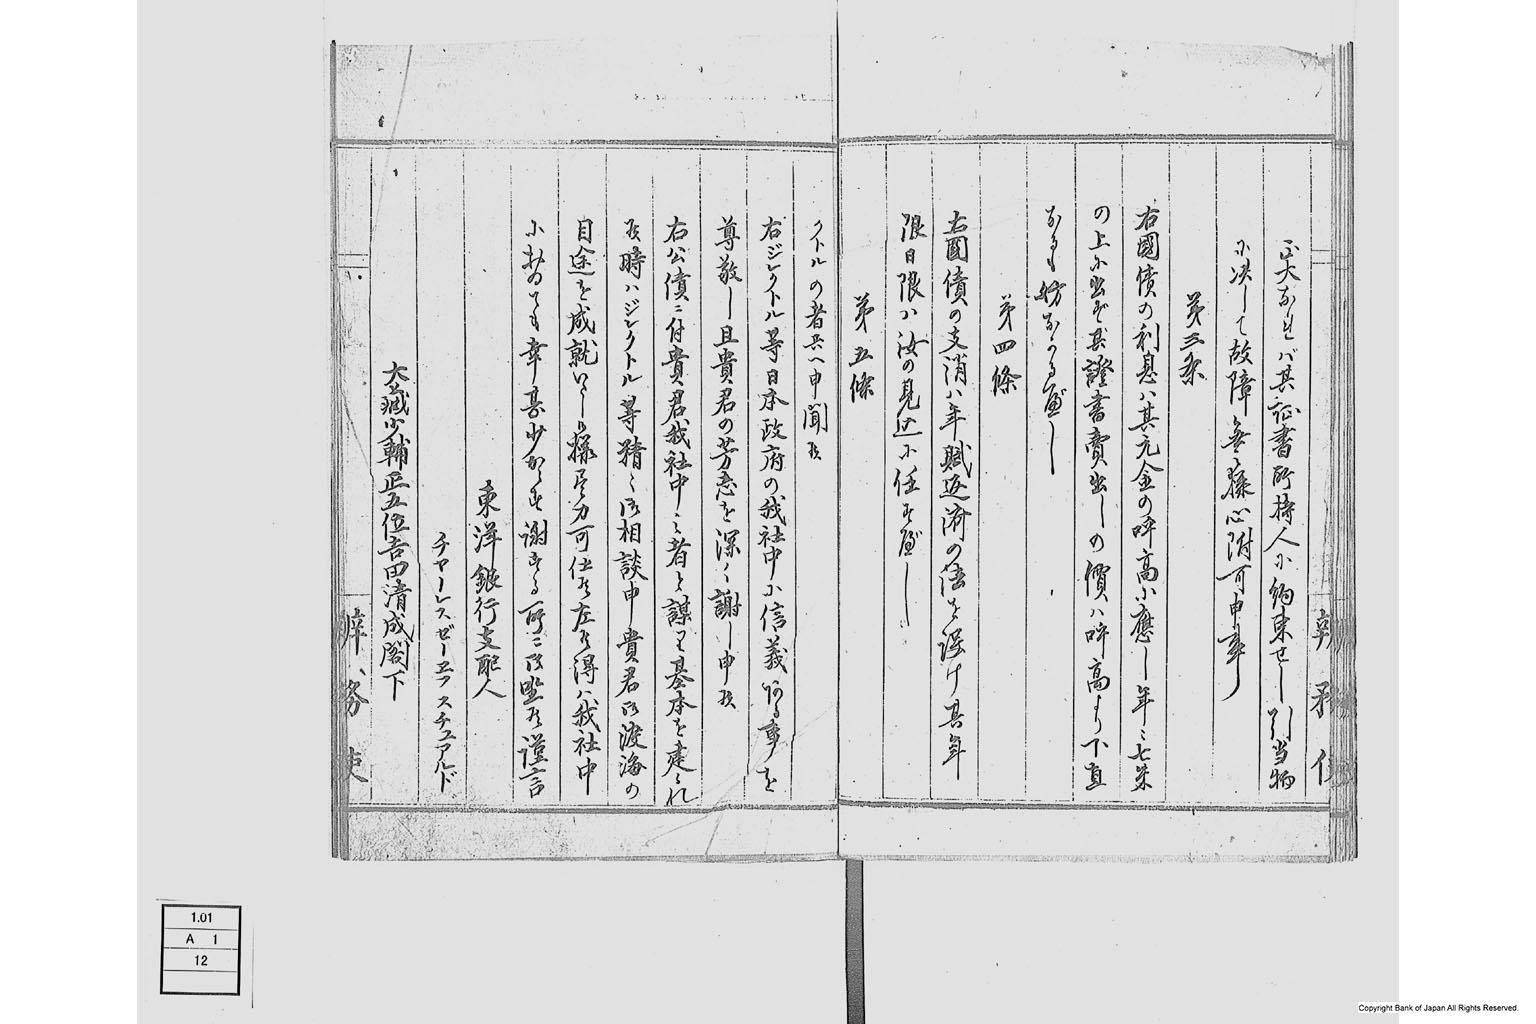 正大なれバ其証書所持人に約束せし引当物
に決して故障無様心附可申事
第三条
右國債の利息ハ其元金の呼高に應し年ニ七朱
の上に出ず其證書賣出しの價ハ呼高より下直
なるも妨なかる可し
第四條
右國債の支消ハ年賦返済の法を設け其年
限日限ハ汝の見込に任す可し
第五條
クトルの者共へ申聞候
右ジレクトル等日本政府の我社中に信義ある事を
尊敬し且貴君の芳志を深く謝し申候
右公債ニ付貴君我社中之者と謀りて基本を建られ
候時ハジレクトル等精々御相談申貴君御渡海の
目途を成就いたし候様尽力可仕候左候得ハ我社中
におゐても幸甚少からす謝する所ニ御座候謹言
東洋銀行支配人
チャーレスゼーエフスチュアルド
大藏少輔正五位吉田清成閣下
辨務使
辨務使
1.01
A 1
12
Copyright Bank of Japan All Rights Reserved.